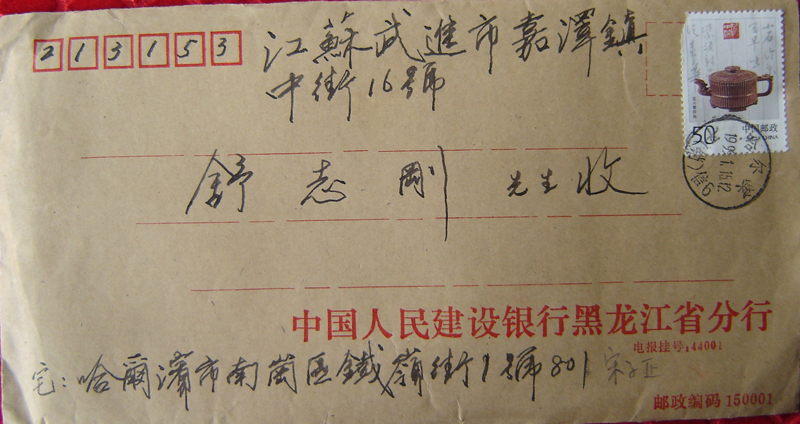 213153
江蘇武進市嘉澤鎮
中街16號
50
中国邮政
CHINA
舒志剛先生收
中国人民建设银行黑龙江省分行
电报挂号:44001
宅:哈爾濱市南崗區鐵嶺街1號801
邮政编码 150001